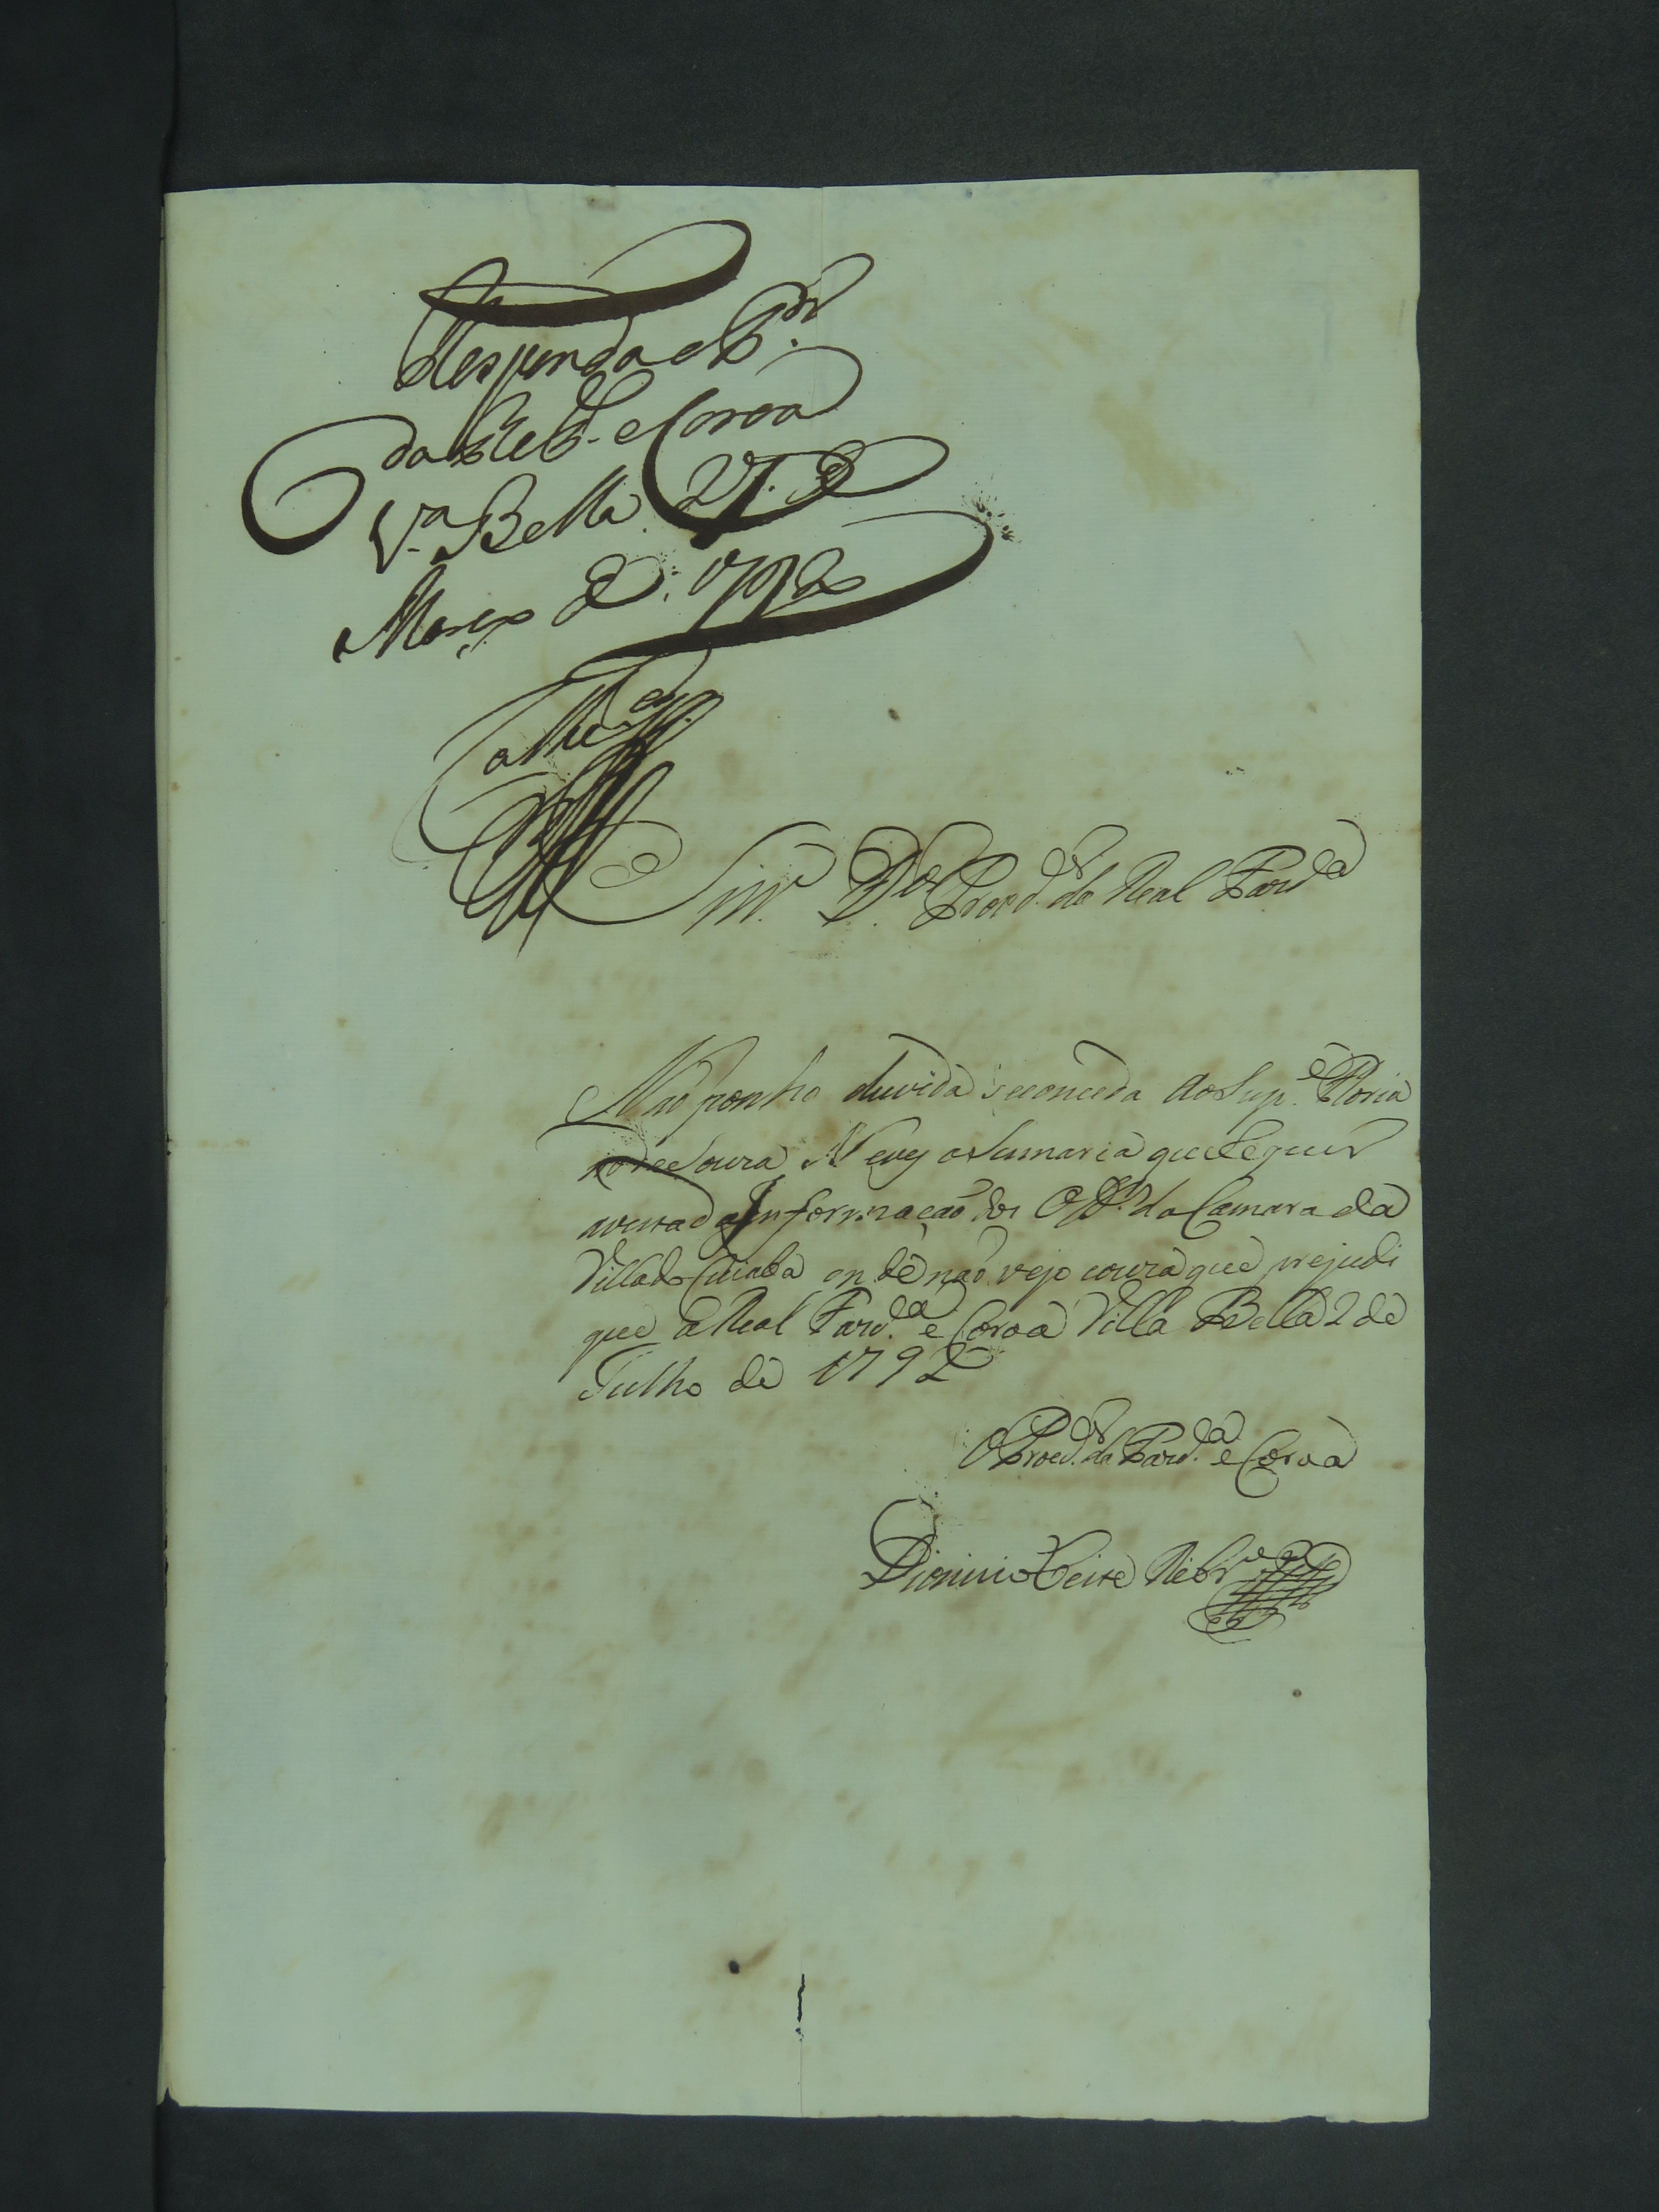 Responda o P.dor
da R. F. e Coroa
V.a Bella 27. de
Março de 1792
Snr. D.or Proc.dor da Real Faz.da
Não ponho duvida se conceda ao Sup.e Floria
no de Souza Neves a Sumaria que Requer
avista da Informação dos Of.es da Camara da
Villa do Cuiaba onde não vejo couza que prejudi
que a Real Faz.da e Coroa Villa Bella 2 de
Julho de 1792
O Proc.dor da Faz.da e Coroa
Dionizio Leite Ribr.o